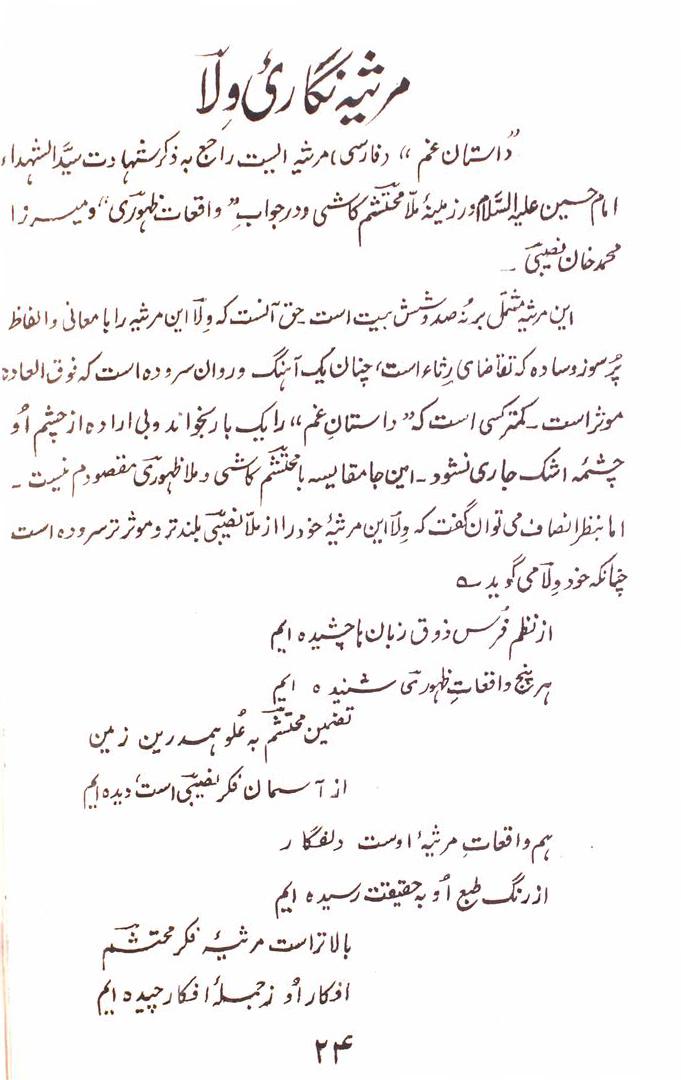 مرثیہ نگاریِ وِلاؔ
”داستان غم“ (فارسی) مرثیہ ایست راجع بہ ذکر شہادت سیّد الشہداء
امام حسین علیہ السّلام ورزمینۂ ملّا محتشمؔ کاشی ودر جوابِ ”واقعات ظہوریؔ“ ومیرزا
محمد خان نصیبیؔ ۔
این مرثیہ مشتمل بر نُہ صد و شش بیت است ۔ حق آنست کہ وِلاؔ این مرثیہ را با معانی والفاظ
پُر سوز وسادہ کہ تقاضای رِثاء است، چنان یک آہنگ وروان سرودہ است کہ فوق العادہ
موثر است ۔ کمتر کسی است کہ ”داستانِ غم“ را یک بار بخواند وبی ارادہ از چشم اُو
چشمہ اشک جاری نشود ۔ این جا مقایسہ با محتشمؔ کاشی و ملا ظہوریؔ مقصودم نیست ۔
اما بنظر انصاف می توان گفت کہ وِلاؔ این مرثیۂ خود را از ملّا نصیبیؔ بلند تر وموثر تر سرودہ است
چنانکہ خود وِلاؔ می گوید ؎
از نظم فُرس ذوق زبان ہا چشیدہ ایم
ہر پنج واقعاتِ ظہوریؔ شنیدہ ایم
تضمین محتشمؔ بہ عُلو ہمدرین زمین
از آسمان فکر نصیبیؔ است، دیدہ ایم
ہم واقعاتِ مرثیۂ اوست دلفگار
از رنگ طبع اُو بہ حقیقت رسیدہ ایم
بالاتر است مرثیۂ فکر محتشمؔ
افکار اُو زجملۂ افکار چیدہ ایم
۲۴